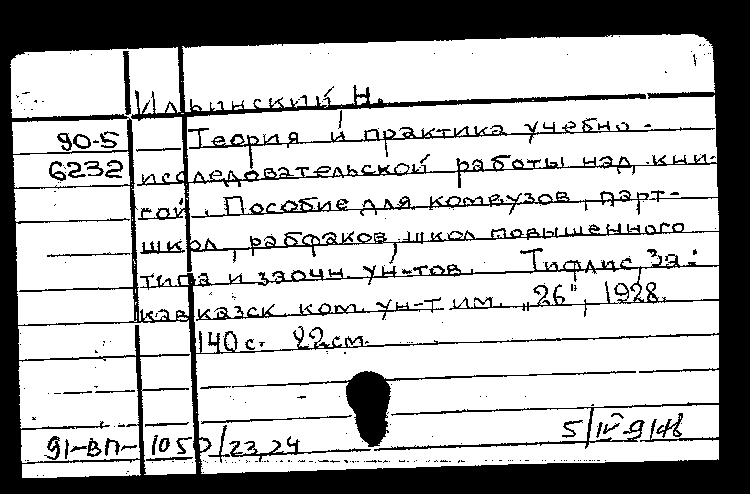 Ильинский Н.
90-5 Теория и практика учебно-
6232 исследовательской работы над кни-
гой. Пособие для комвузов, парт-
школ, рабфаков, школ повышенного
типа и заочн. ун-тов. Тифлис, За-
кавказск. ком. ун-т им. „26", 1928.
140 с. 22 см.
91-ВП-1050/23,24 5/IV-91